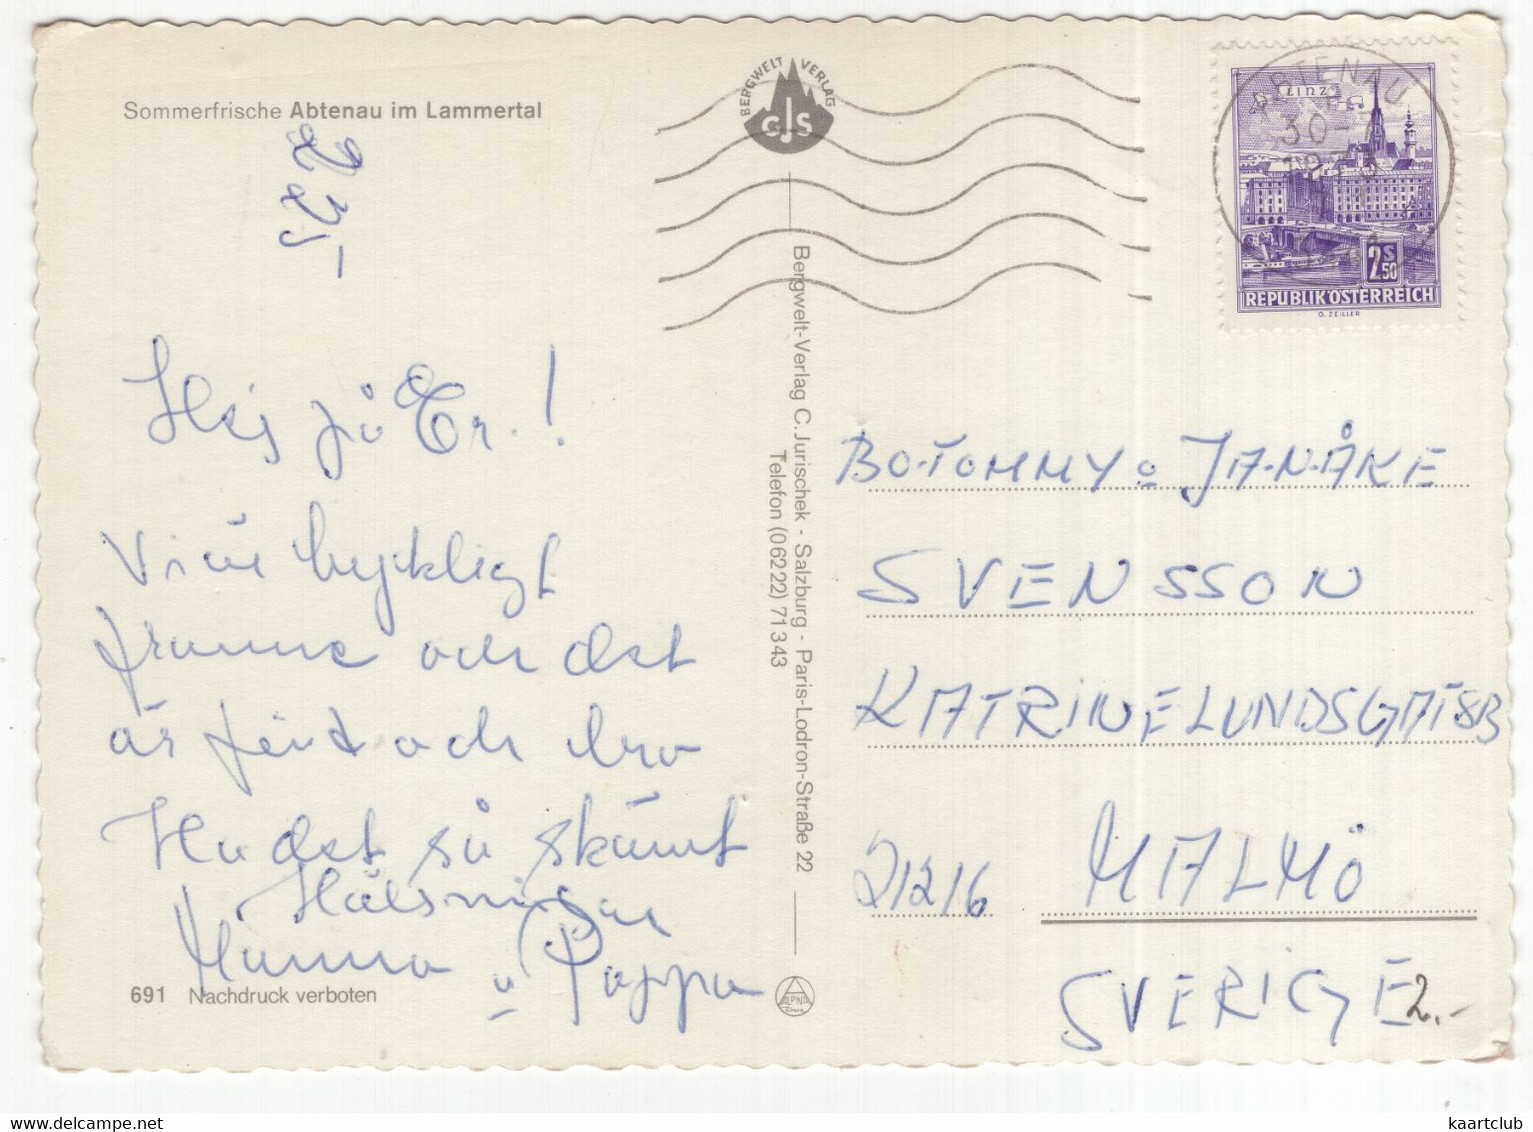 Sommerfrische Abtenau im Lammertal
BERGWELT VERLAG
CJS
ABTENAU
30-7
LINZ
2S50
REPUBLIK ÖSTERREICH
O. ZEILLER
Hej på Er.!
Vi är lyckligt
framme och det
är fint och bra
Ha det så skönt
Hälsningar
Mamma o Pappa
691 Nachdruck verboten
Bergwelt-Verlag C. Jurischek - Salzburg - Paris-Lodron-Straße 22
Telefon (06222) 71343
BO-TOMMY o JAN-ÅKE
SVENSSON
KATRINELUNDSGAT 8B
21216 MALMÖ
SVERIGE
2.-
kaartclub